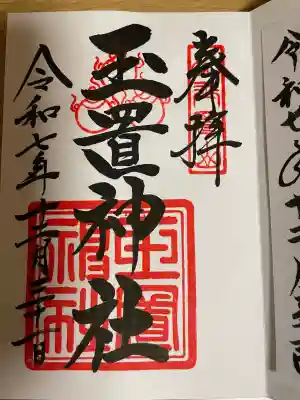 奉拝
玉置神社
令和七年十二月二十日
玉置神社